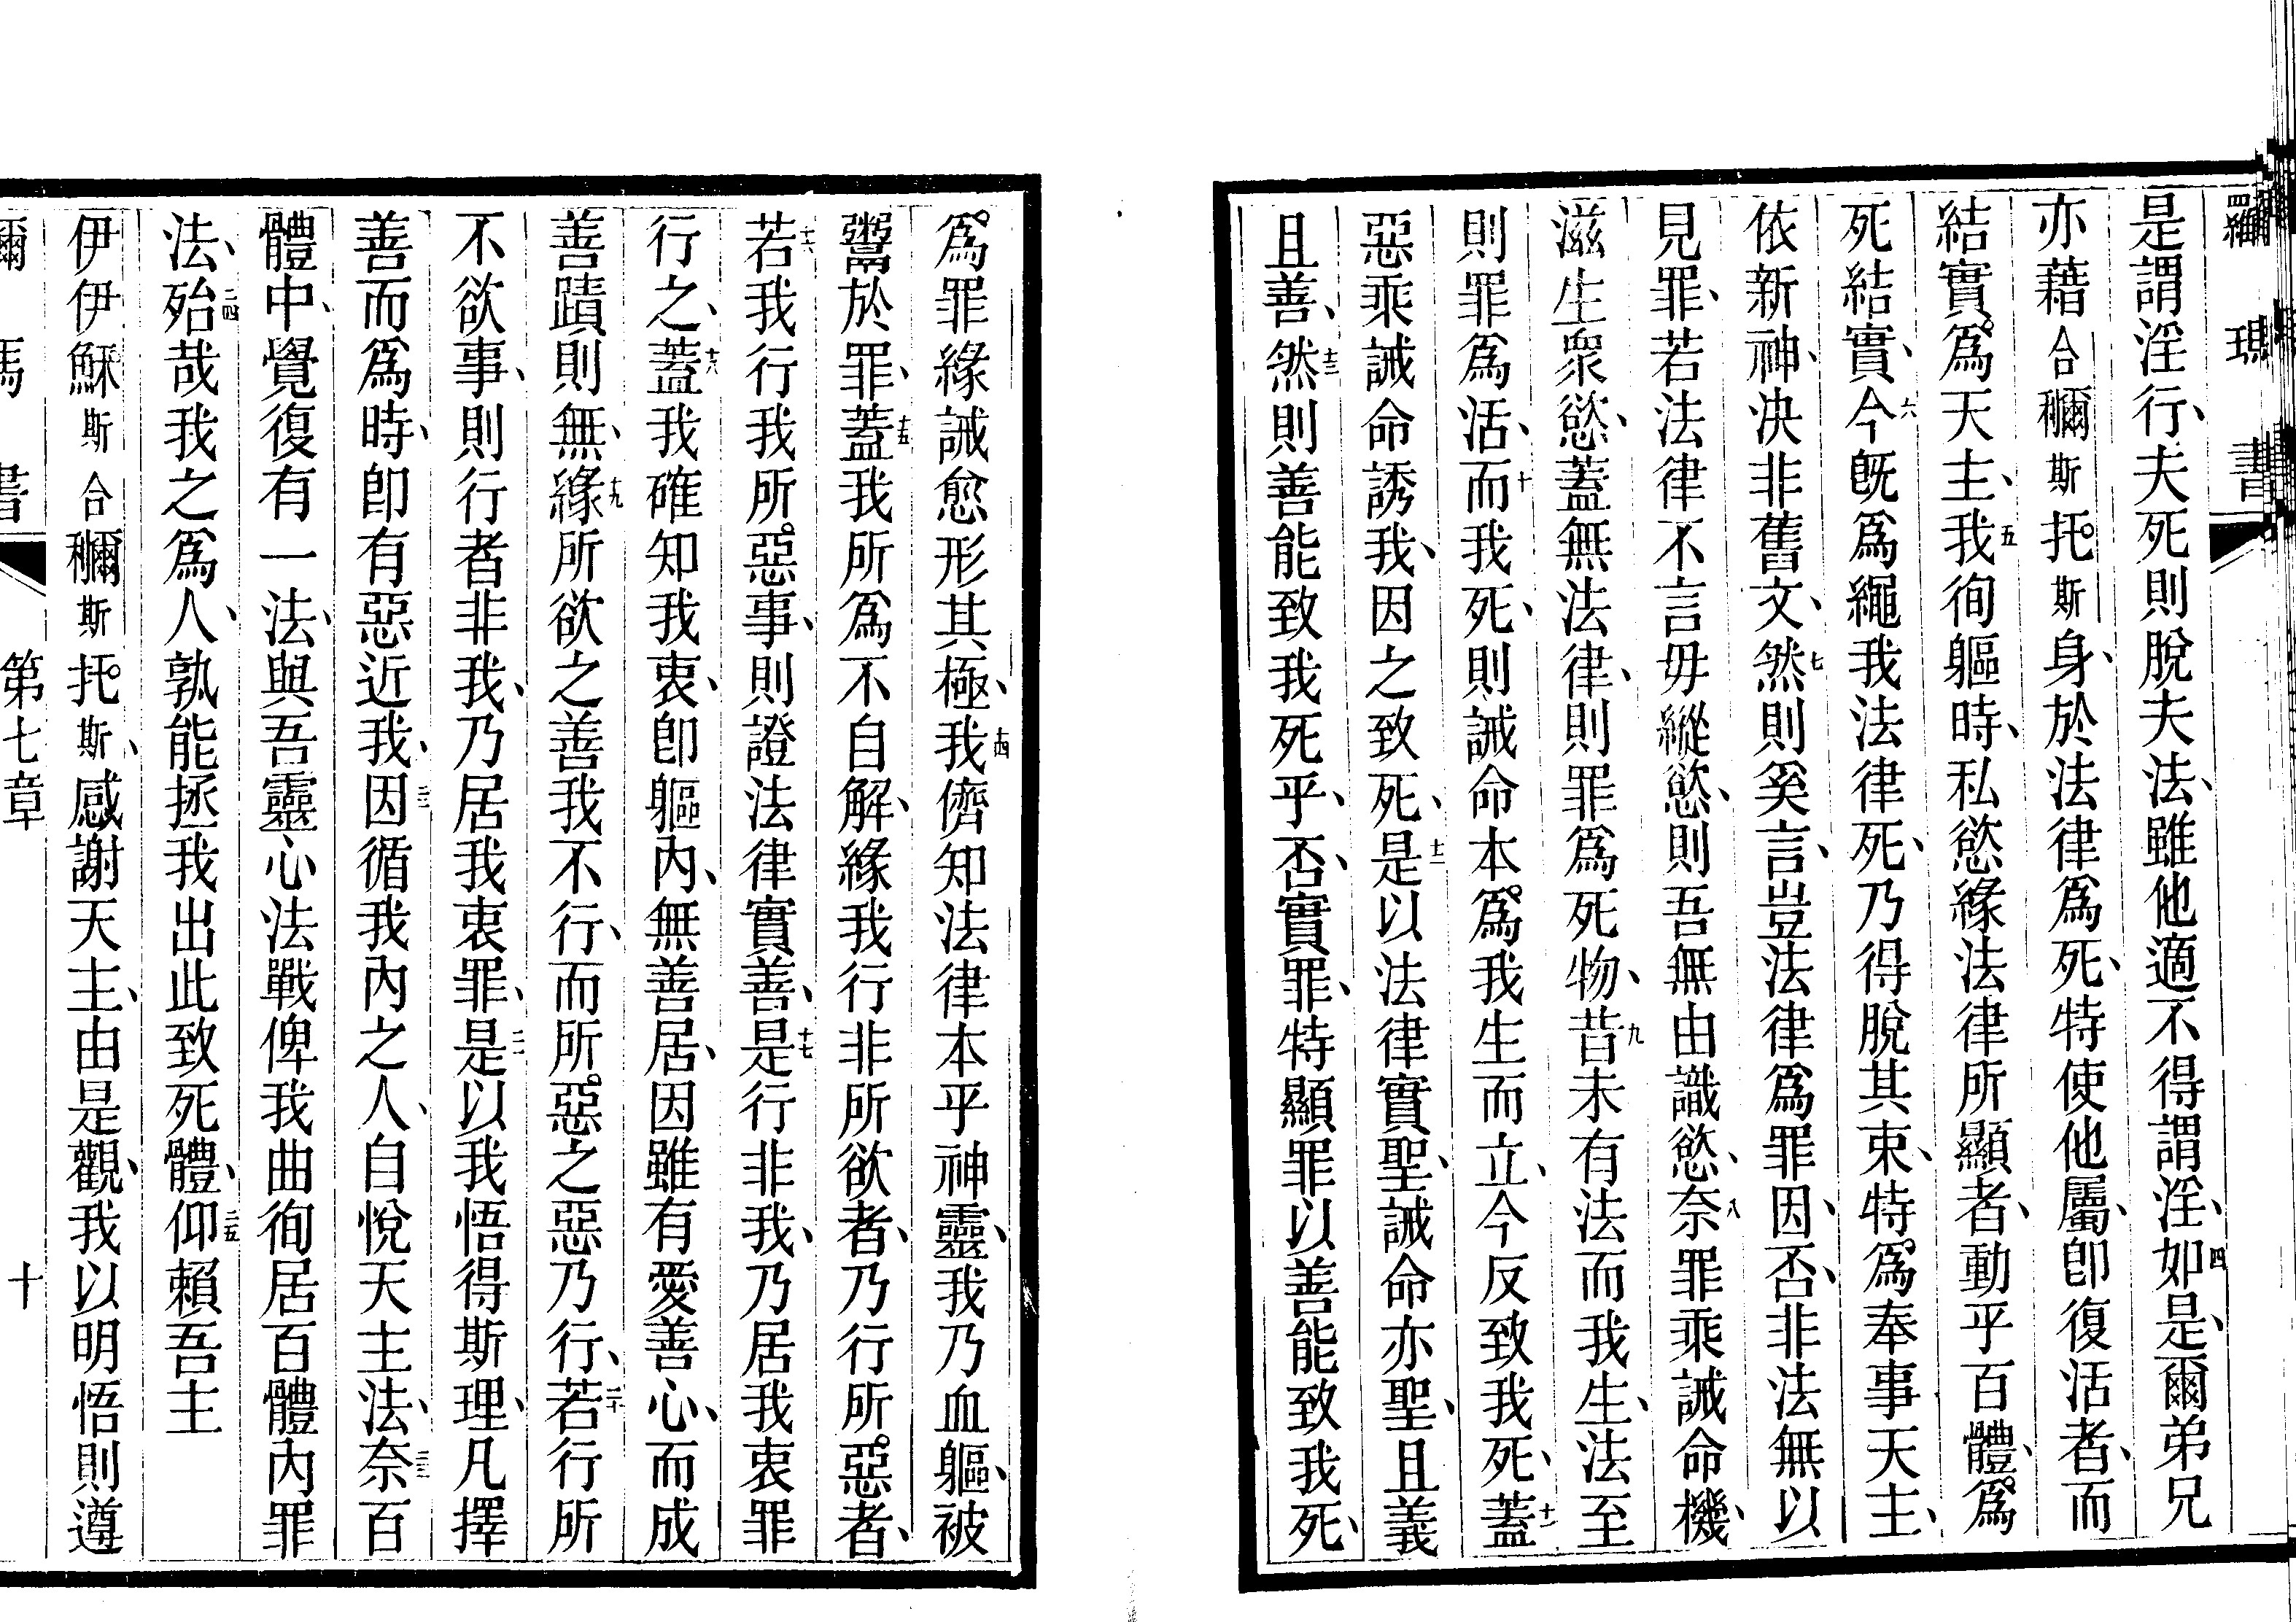 羅瑪書
是謂淫行、夫死則脫夫法、雖他適不得謂淫、四如是、爾弟兄
亦藉合穪斯托斯身、於法律爲死、特使他屬、卽復活者、而
結實爲天主、五我徇軀時、私慾緣法律所顯者、動乎百體、爲
死結實、六今旣爲繩我法律死、乃得脫其束、特爲奉事天主、
依新神、決非舊文、七然則奚言、豈法律爲罪因、否、非法無以
見罪、若法律不言毋縱慾、則吾無由識慾、八奈罪乘誡命機、
滋生衆慾、蓋無法律、則罪爲死物、九昔未有法而我生、法至
則罪爲活、十而我死、則誡命本爲我生而立、今反致我死、十一蓋
惡乘誡命誘我、因之致死、十二是以法律實聖、誡命亦聖、且義
且善、十三然則善能致我死乎、否、實罪、特顯罪以善能致我死、
爲罪緣誡愈形其極、十四我儕知法律本乎神靈、我乃血軀、被
鬻於罪、十五蓋我所爲不自解、緣我行非所欲者、乃行所惡者、
十六若我行我所惡事、則證法律實善、十七是行非我、乃居我衷罪
行之、十八蓋我確知我衷、卽軀內、無善居、因雖有愛善心、而成
善蹟則無、十九緣所欲之善我不行、而所惡之惡乃行、二十若行所
不欲事、則行者非我、乃居我衷罪、二一是以我悟得斯理、凡擇
善而爲時、卽有惡近我、二二因循我內之人、自悅天主法、二三奈百
體中、覺復有一法、與吾靈心法戰、俾我曲徇居百體內罪
法、二四殆哉我之爲人、孰能拯我出此致死體、二五仰賴吾主
伊伊穌斯合穪斯托斯、感謝天主、由是觀、我以明悟則遵
第七章
十